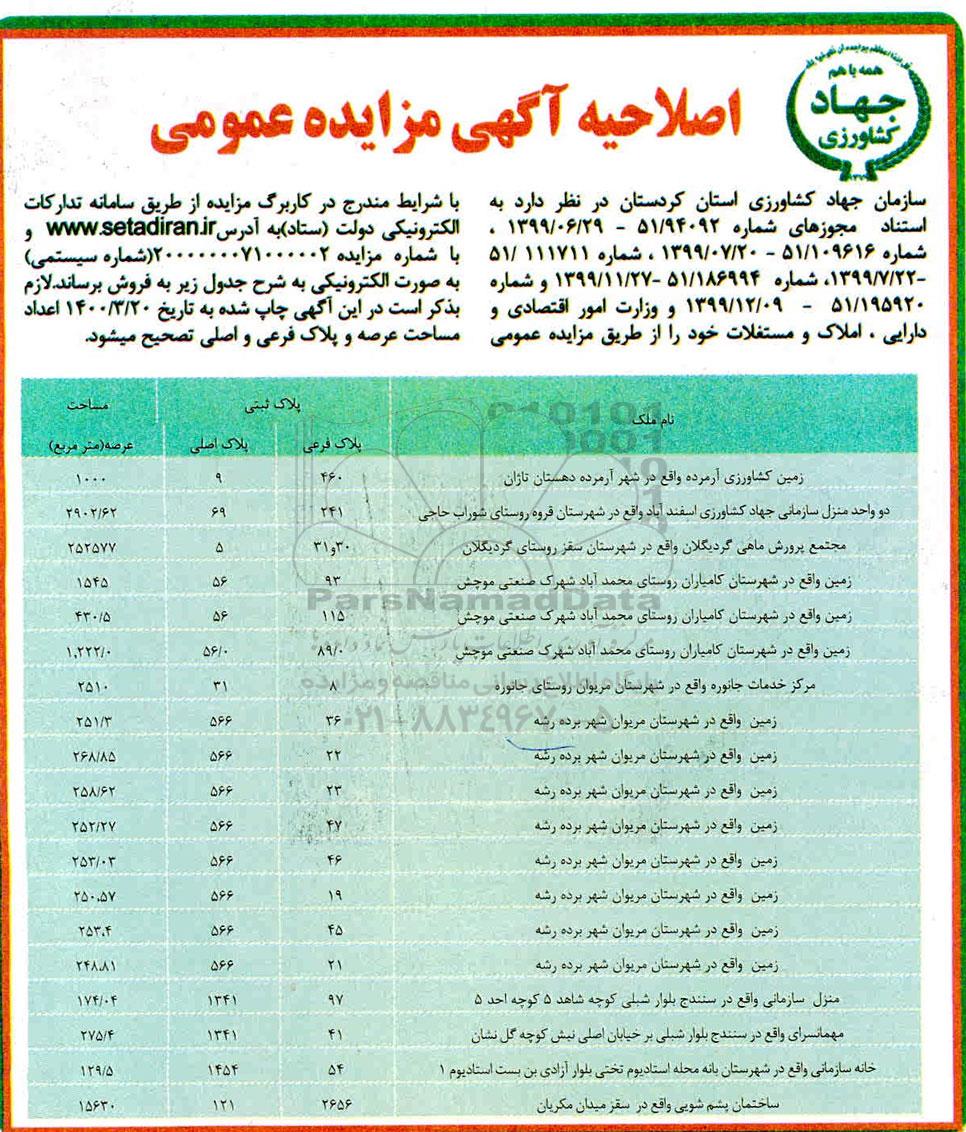 همه با هم
جهاد
کشاورزی
اصلاحیه آگهی مزایده عمومی
سازمان جهاد کشاورزی استان کردستان در نظر دارد به
استناد مجوزهای شماره ۵۱/۹۴۰۹۲ - ۱۳۹۹/۰۶/۲۹ ،
شماره ۵۱/۱۰۹۶۱۶ - ۱۳۹۹/۰۷/۲۰ ، شماره ۱۱۱۷۱۱ /۵۱
-۱۳۹۹/۷/۲۲، شماره ۵۱/۱۸۶۹۹۴ -۱۳۹۹/۱۱/۲۷ و شماره
۵۱/۱۹۵۹۲۰ - ۱۳۹۹/۱۲/۰۹ و وزارت امور اقتصادی و
دارایی ، املاک و مستغلات خود را از طریق مزایده عمومی
با شرایط مندرج در کاربرگ مزایده از طریق سامانه تدارکات
الکترونیکی دولت (ستاد)به آدرسwww.setadiran.ir و
با شماره مزایده ۲۰۰۰۰۰۰۰۷۱۰۰۰۰۰۲(شماره سیستمی)
به صورت الکترونیکی به شرح جدول زیر به فروش برساند.لازم
بذکر است در این آگهی چاپ شده به تاریخ ۱۴۰۰/۳/۲۰ اعداد
مساحت عرصه و پلاک فرعی و اصلی تصحیح میشود.
نام ملک پلاک ثبتی مساحت
پلاک فرعی پلاک اصلی عرصه(متر مربع)
زمین کشاورزی آرمرده واقع در شهر آرمرده دهستان تاژان ۴۶۰ ۹ ۱۰۰۰
دو واحد منزل سازمانی جهاد کشاورزی اسفند آباد واقع در شهرستان قروه روستای شوراب حاجی ۲۴۱ ۶۹ ۲۹۰۲/۶۲
مجتمع پرورش ماهی گردیگلان واقع در شهرستان سقز روستای گردیگلان ۳۰و۳۱ ۵ ۲۵۲۵۷۷
زمین واقع در شهرستان کامیاران روستای محمد آباد شهرک صنعتی موچش ۹۳ ۵۶ ۱۵۴۵
زمین واقع در شهرستان کامیاران روستای محمد آباد شهرک صنعتی موچش ۱۱۵ ۵۶ ۴۳۰/۵
زمین واقع در شهرستان کامیاران روستای محمد آباد شهرک صنعتی موچش ۸۹/۰ ۵۶/۰ ۱,۲۲۲/۰
مرکز خدمات جانوره واقع در شهرستان مریوان روستای جانوره ۸ ۳۱ ۲۵۱۰
زمین واقع در شهرستان مریوان شهر برده رشه ۳۶ ۵۶۶ ۲۵۱/۳
زمین واقع در شهرستان مریوان شهر برده رشه ۲۲ ۵۶۶ ۲۶۸/۸۵
زمین واقع در شهرستان مریوان شهر برده رشه ۲۳ ۵۶۶ ۲۵۸/۶۲
زمین واقع در شهرستان مریوان شهر برده رشه ۴۷ ۵۶۶ ۲۵۲/۲۷
زمین واقع در شهرستان مریوان شهر برده رشه ۴۶ ۵۶۶ ۲۵۳/۰۳
زمین واقع در شهرستان مریوان شهر برده رشه ۱۹ ۵۶۶ ۲۵۰.۵۷
زمین واقع در شهرستان مریوان شهر برده رشه ۴۵ ۵۶۶ ۲۵۳.۴
زمین واقع در شهرستان مریوان شهر برده رشه ۲۱ ۵۶۶ ۲۴۸.۸۱
منزل سازمانی واقع در سنندج بلوار شبلی کوچه شاهد ۵ کوچه احد ۵ ۹۷ ۱۳۴۱ ۱۷۴/۰۴
مهمانسرای واقع در سنندج بلوار شبلی بر خیابان اصلی نبش کوچه گل نشان ۴۱ ۱۳۴۱ ۲۷۵/۴
خانه سازمانی واقع در شهرستان بانه محله استادیوم تختی بلوار آزادی بن بست استادیوم ۱ ۵۴ ۱۴۵۴ ۱۲۹/۵
ساختمان پشم شویی واقع در سقز میدان مکریان ۲۶۵۶ ۱۲۱ ۱۵۶۳۰
ParsNamadData
پایگاه اطلاع رسانی مناقصه و مزایده
۰۲۱-۸۸۳۴۹۶۷۰-۵